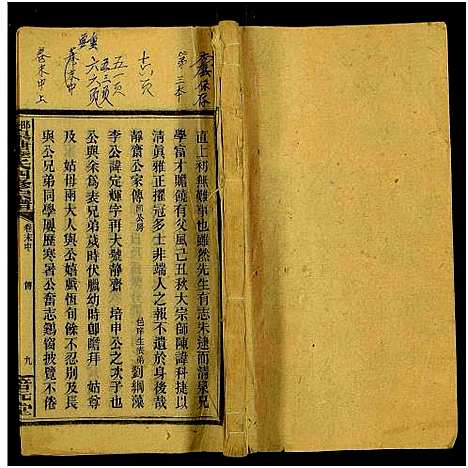 慶保存
第三本
十六頁
五一頁
五三頁
六六頁
卷末中
卷末中上
直上初無難事也雖然先生有志未逮而清泉兄
學富才贍饒有父風己丑秋大宗師陳諱科捷以
清真雅正擢冠多士非端人之報不遺於身後哉
靜齋公家傳
邑庠生表弟劉綱藻
李公諱定輝字再大號靜齋培申公之次子也
公與余為表兄弟歲時伏臘幼時卽贈拜姑尊
及姑母兩大人與公嬉戲恆旬餘不忍別及長
與公兄弟同學屢歷寒暑公奮志鷄窗披覽不倦
卷末中
傳
九